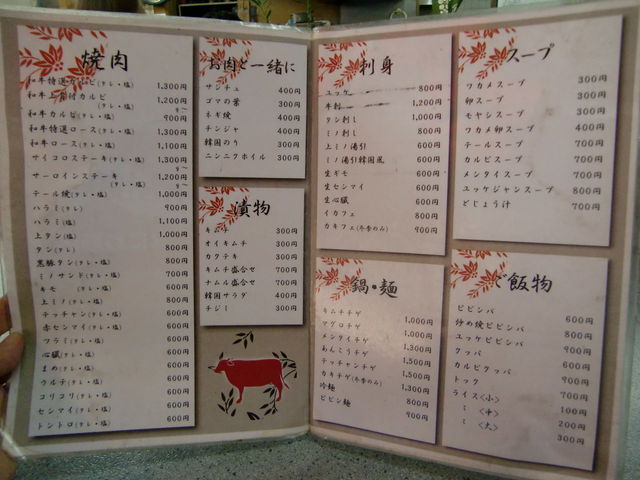 焼肉
和牛特選カルビ(タレ・塩) 1,300円
和牛上骨付カルビ(タレ・塩) 1,200円~
和牛カルビ(タレ・塩) 900円
和牛特選ロース(タレ・塩) 1,300円
和牛ロース(タレ・塩) 1,100円
サイコロステーキ(タレ・塩) 1,300円~
サーロインステーキ(タレ・塩) 1,200円~
テール焼(タレ・塩) 1,000円
ハラミ(タレ) 900円
ハラミ(塩) 1,100円
上タン(塩) 1,000円
タン(タレ) 800円
黒豚タン(タレ・塩) 800円
ミノサンド(タレ・塩) 700円
キモ(タレ・塩) 600円
上ミノ(タレ・塩) 800円
テッチャン(タレ・塩) 600円
赤センマイ(タレ・塩) 600円
ツラミ(タレ・塩) 600円
心臓(タレ・塩) 600円
まめ(タレ・塩) 600円
ウルテ(タレ・塩) 600円
コリコリ(タレ・塩) 600円
センマイ(タレ・塩) 600円
トントロ(タレ・塩) 600円
お肉と一緒に
サンチュ 400円
ゴマの葉 300円
ネギ焼 400円
チンジャ 400円
韓国のり 300円
ニンニクホイル 300円
漬物
キムチ 300円
オイキムチ 300円
カクテキ 300円
キムチ盛合せ 700円
ナムル盛合せ 700円
韓国サラダ 400円
チジミ 300円
刺身
ユッケ 800円
生刺 1,200円
タン刺し 1,000円
ミノ刺し 800円
上ミノ湯引 800円
ミノ湯引韓国風 800円
生ギモ 800円
生センマイ 800円
生心臓 800円
イカフェ 800円
カキフェ(冬季のみ) 900円
鍋・麺
キムチチゲ 1,000円
マグロチゲ 1,000円
メンタイチゲ 1,300円
あんこうチゲ 1,500円
テッチャンチゲ 1,500円
カキチゲ(冬季のみ) 1,300円
冷麺 800円
ビビン麺 900円
スープ
ワカメスープ 300円
卵スープ 300円
モヤシスープ 300円
ワカメ卵スープ 400円
テールスープ 700円
カルビスープ 700円
メンタイスープ 700円
ユッケジャンスープ 800円
どじょう汁 700円
ご飯物
ビビンバ 600円
炒め焼ビビンバ 800円
ユッケビビンバ 900円
クッパ 600円
カルビクッパ 900円
トック 700円
ライス<小> 100円
〃 <中> 200円
〃 <大> 300円